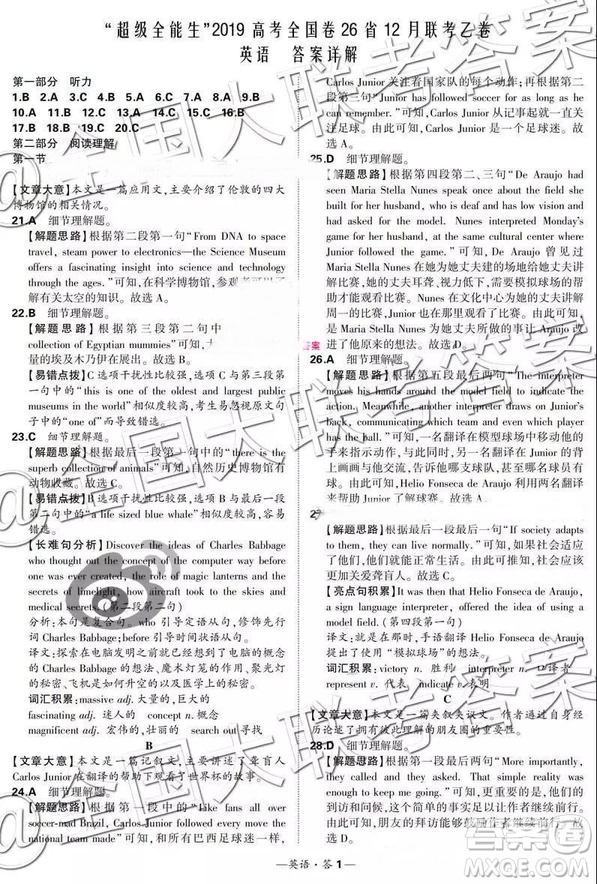 “超级全能生”2019 高考全国卷 26 省 12 月联考乙卷
英语 答案详解
第一部分 听力
1.B 2.A 3.C 4.B 5.C 6.C 7.A 8.A 9.B
10.A 11.A 12.C 13.A 14.C 15.C 16.B
17.B 18.B 19.C 20.C
第二部分 阅读理解
第一节
A
【文章大意】本文是一篇应用文,主要介绍了伦敦的四大
博物馆的相关情况。
21.A 细节理解题。
【解题思路】根据第二段第一句“From DNA to space
travel, steam power to electronics—the Science Museum
offers a fascinating insight into science through
the ages.”可知,在科学博物馆,
解有关太空的知识。故选 A。
22.B 细节理解题。
【解题思路】根据第三段第二句中
collection of Egyptian mummies”可知,
量的埃及木乃伊在展出。故选 B。
【易错点拨】选项 C 干扰性比较强,选项 C 与第三段第
一句中的“this is one of the oldest and largest public
museums in the world”相似度较高,考生易忽视原文句
子中的“one of”而导致错选。
23.C 细节理解题。
【解题思路】根据最后一段第一句中的“there is the
superb collection of animals”可知,自然历史博物馆有
动物展览。故选 C。
【易错点拨】选项 B 干扰性比较强,选项 B 与最后一段
第二句中的“a life sized blue whale”相似度较高,容易
错选。
【长难句分析】Discover the ideas of Charles Babbage
who thought of the concept of the computer way before
one was ever created, the role of magic lanterns and the
secrets of limelight, how aircraft took to the skies and
medical advances. (第二段第二句)
分析:本句是复合句。who 引导定语从句,修饰先行
词 Charles Babbage;before 引导时间状语从句。
译文:探索在电脑发明之前就已经想到了电脑的概念
的 Charles Babbage 的想法、魔术灯笼的作用、聚光灯
的秘密、飞机是如何升空的以及医学的进步。
词汇积累:massive adj. 大量的,巨大的
fascinating adj. 迷人的 concept n. 概念
magnificent adj. 宏伟的,壮丽的 search out 寻找
B
【文章大意】本文是一篇记叙文,主要讲述了聋盲人
Carlos Junior 在翻译的帮助下观看了世界杯的故事。
24.A 细节理解题。
【解题思路】根据第二段第一句中的“Like fans all over
soccer-mad Brazil, Carlos Junior followed every move the
national team made”可知,和所有巴西足球球迷一样,
Carlos Junior 关注着国家队的每个动作。再根据第二
段第三句“Junior has followed soccer for as long as he
can remember.”可知,Carlos Junior 从记事起就一直关
注足球。由此可知,Carlos Junior 是一个足球迷。故
选 A。
25.D 细节理解题。
【解题思路】根据第四段第二、三句“De Araujo had
seen Maria Stella Nunes speak once about the field she
built for her husband, who is deaf and has low vision and
had asked for the model. Nunes interpreted Monday's
game for her husband, at the same cultural center where
Junior followed the match.”可知,De Araujo 曾见过
Maria Stella Nunes 在她为她丈夫建的场地给她丈夫讲
解比赛。她丈夫耳聋,视力低下,需要模拟球场的帮
助才能观看比赛。Nunes 在文化中心为她的丈夫讲解
比赛,Junior 也在那里观看了比赛。由此可知 Araujo 改
进了他原来的想法。故选 D。
答案
26.A 细节理解题。
【解题思路】根据第五段最后两句“The interpreter
moves his hands around the model field to indicate the
action. Meanwhile, another interpreter draws on Junior's
back, communicating which team and even which player
has the ball.”可知,一名翻译在模型球场中移动他的
手来指示动作,与此同时,另一名翻译在 Junior 的背
上画画与他交流,告诉他哪支球队,甚至哪名球员有
球。由此可知 Helio Fonseca de Araujo 利用两名翻译
帮助 Junior 了解球赛。故选 A。
2
【解题思路】根据最后一段最后一句“If society adapts
to them, they can live normally.”可知,如果社会适应
了他们,他们就能正常生活。由此可推知,社会应更
加关爱聋盲人。故选 D。
【亮点句积累】It was then that Helio Fonseca de Araujo,
a sign language interpreter, offered the idea of using
model field.
译文:就在那时,手语翻译 Helio Fonseca de Araujo 提
出了使用模拟球场的想法。
词汇积累:victory n. 胜利 interpreter n. 译者
represent v. 代表 indicate v. 表示
C
【文章大意】本文是一篇夹叙夹议文。文章讲述了作者
经历后意识到陪伴的重要性。
28.D 细节理解题。
【解题思路】根据最后一段最后两句“More importantly,
they called and they visited. That simple reality was
enough to keep me going.”可知,更重要的是,他们的
到访和问候,这个简单的事实足以让作者继续前行。
由此可知,是他们的到访和问候让作者继续前行的。
—英语·答 1—
@全国大联考答案
答案圈
MXQE.COM